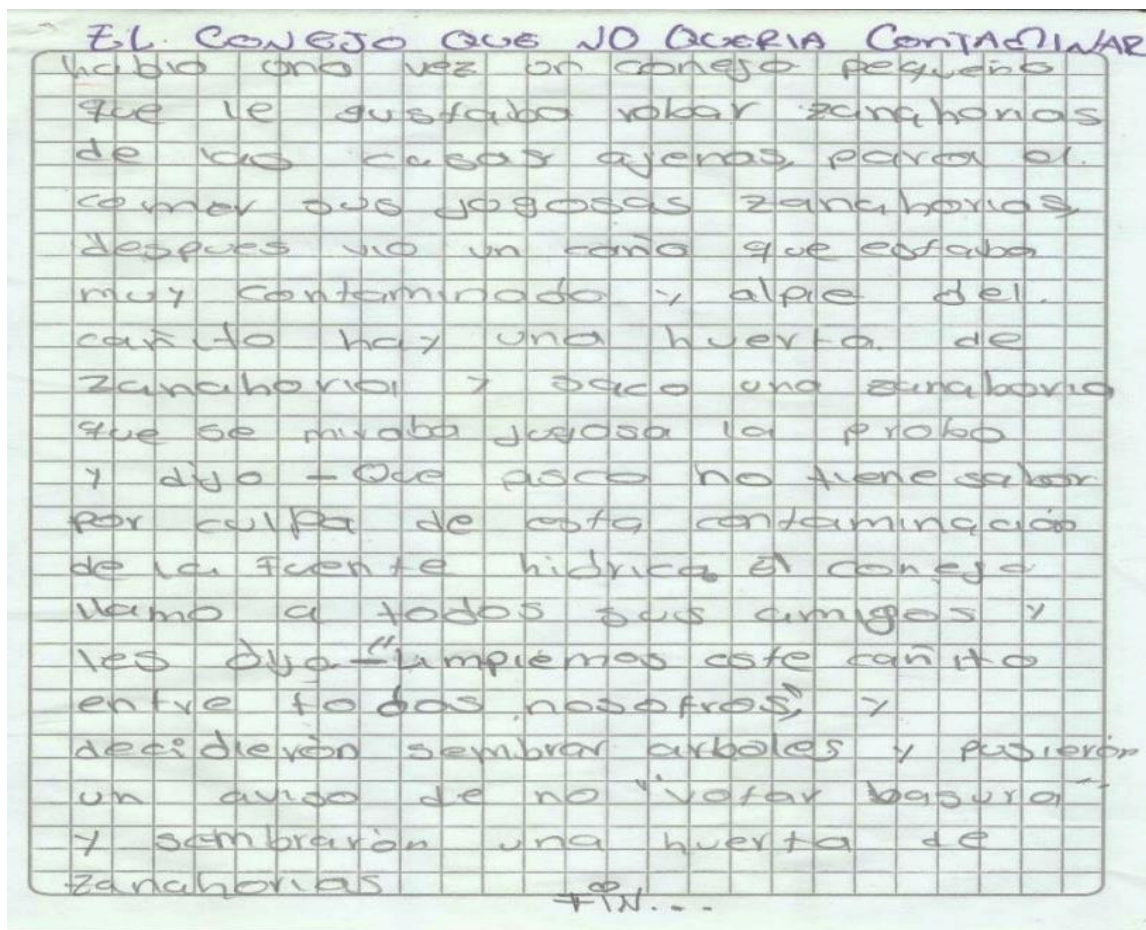 EL CONEJO QUE NO QUERIA CONTAMINAR
habia una vez un conejo pequeño
que le gustaba robar zanahorias
de las casas ajenas, para el
comer sus jogosas zanahorias,
despues vio un caño que estaba
muy contaminado y alpie del
cañito hay una huerta de
zanahoria y saco una zanahoria
que se miraba jugosa la probo
y dijo - Que asco no tiene sabor
por culpa de esta contaminación
de la fuente hidrica. El conejo
llamo a todos sus amigos y
les dijo - "Limpiemos este cañito
entre todos nosotros", y
decidierón sembrar arboles y pusierón
un aviso de no "votar basura"
y sembrarón una huerta de
zanahorias
FIN...